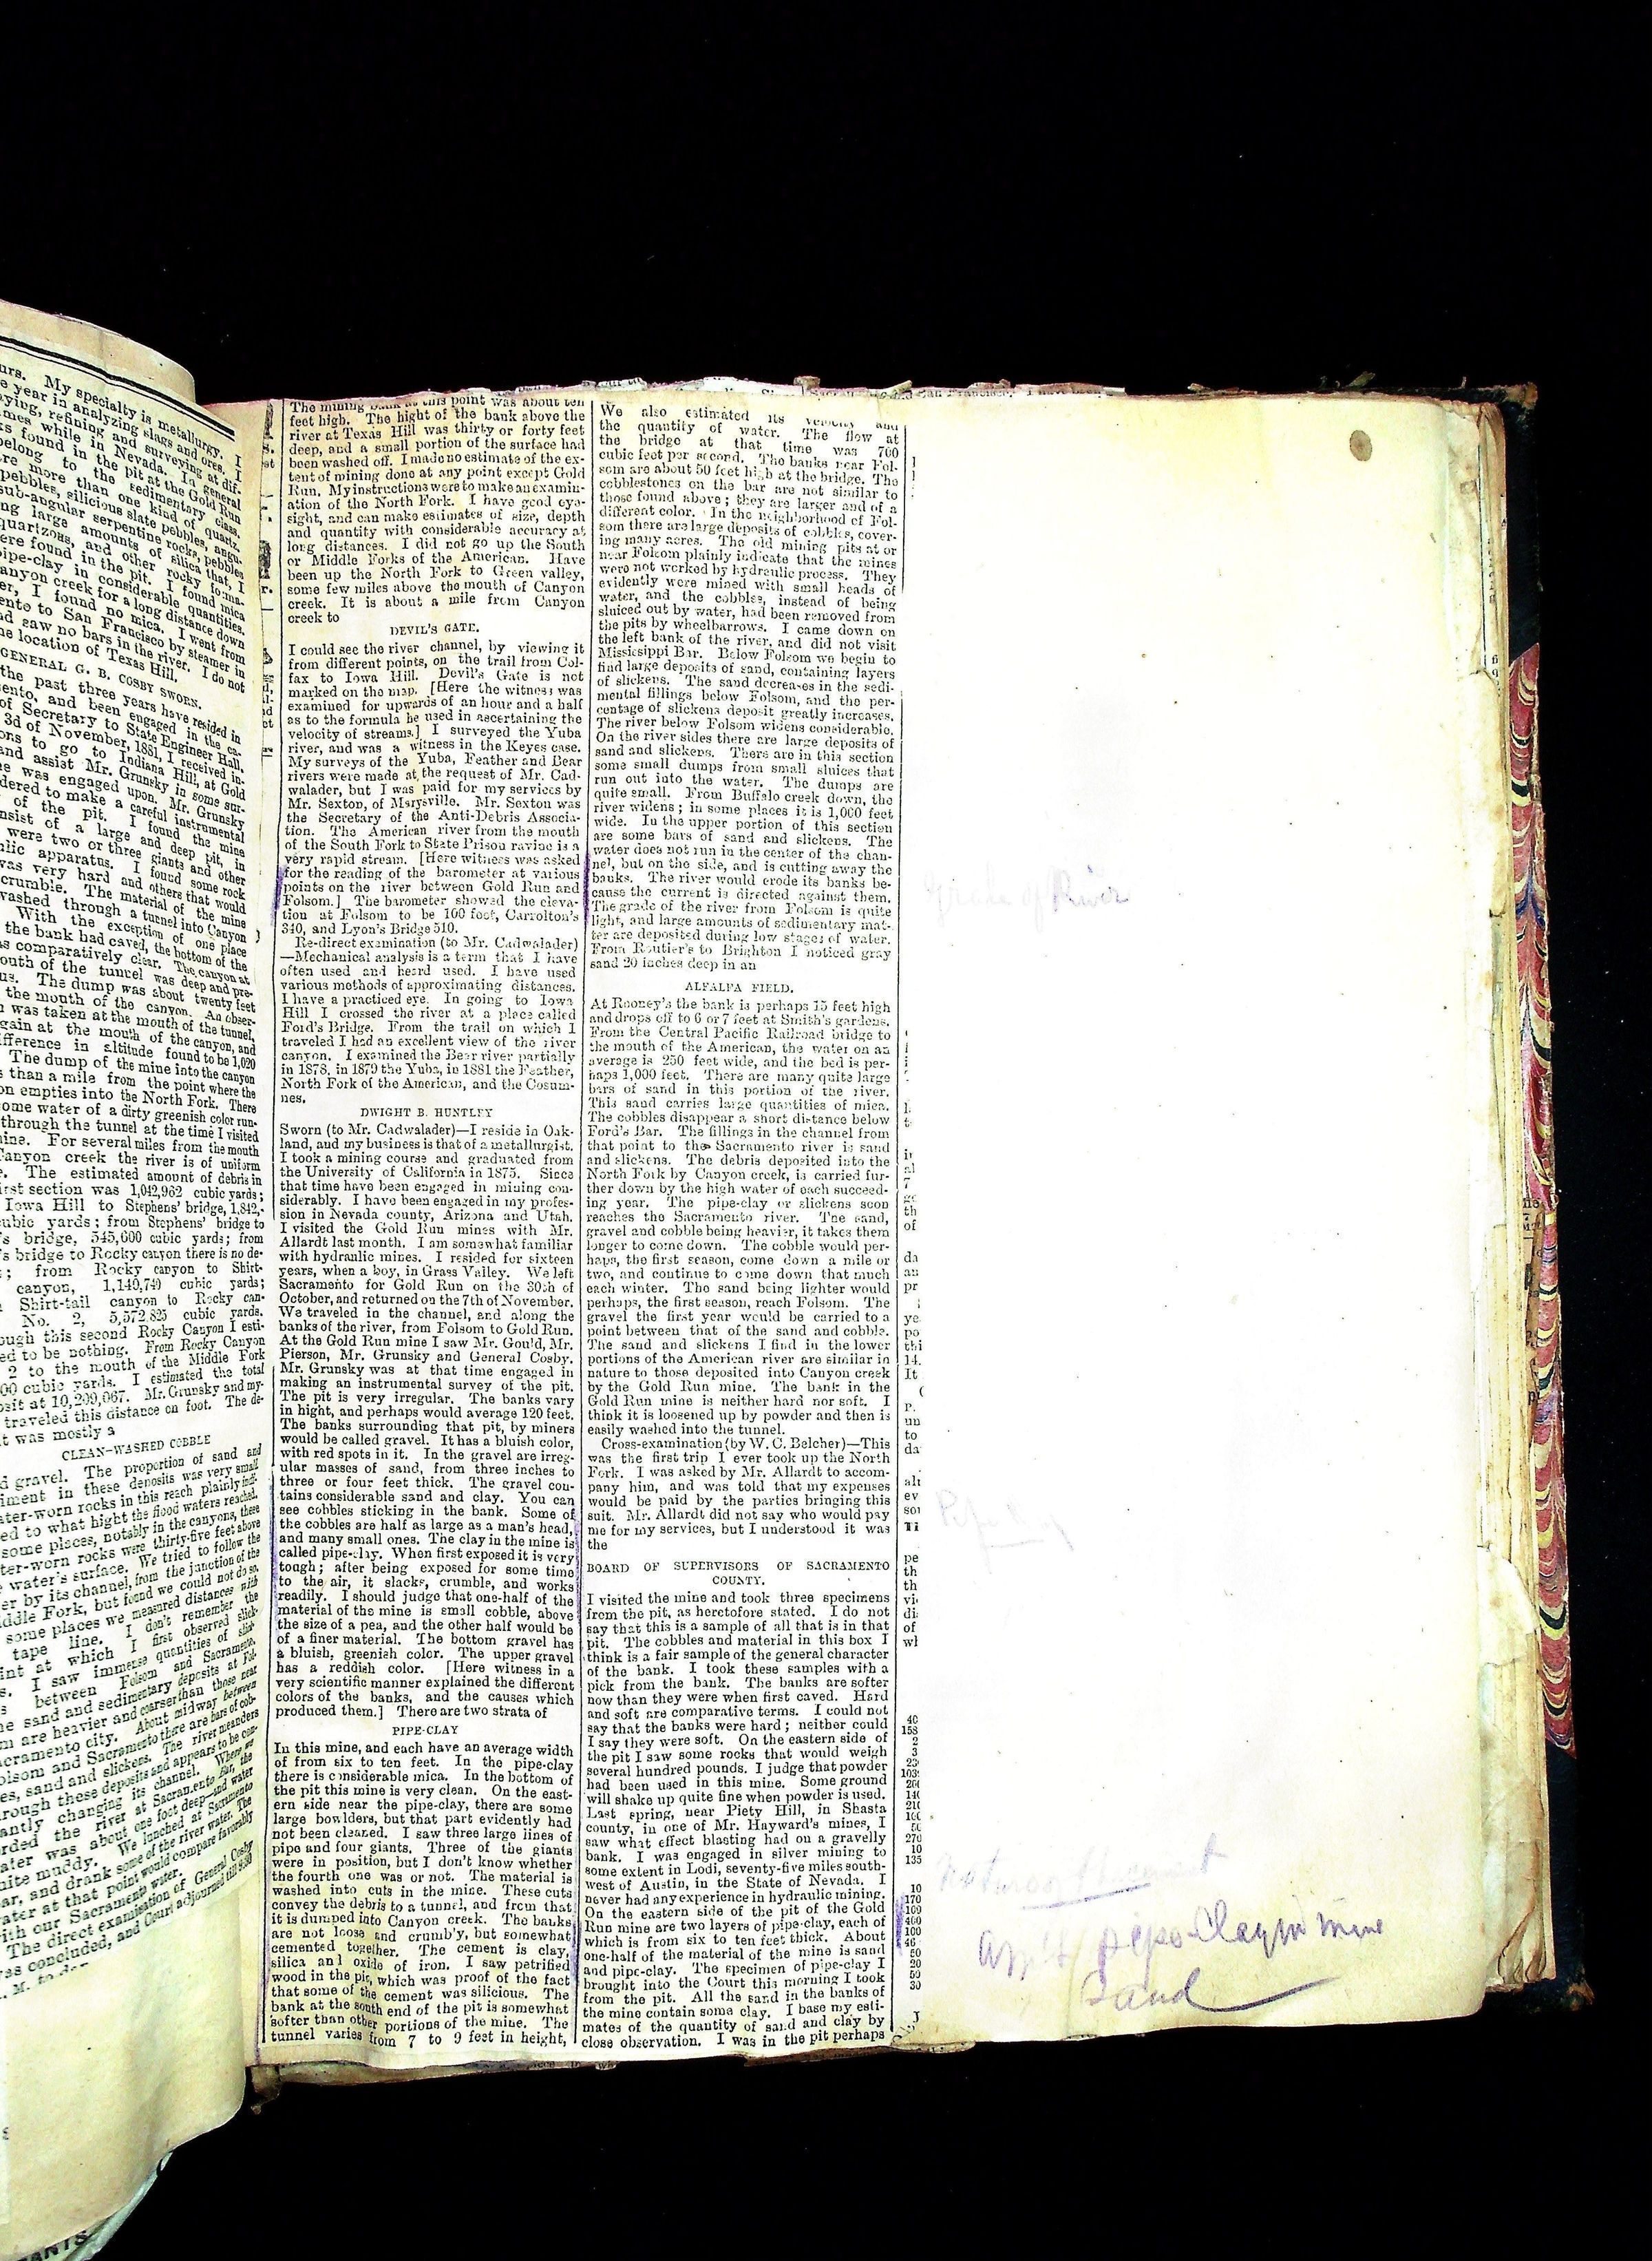 urs. My specialty is metallurgy. I
e year in analyzing slags and ores. I
aying, refining and surveying at dif-
mes while in Nevada. In general
s found in the pit at the Gold Run
belong to the sedimentary class.
re more than one kind of quartz,
pebbles, silicious slate pebbles, angu-
sub-angular serpentine rocks, pebbles
ng large amounts of silica that, I
quartzons, and other rocky forma-
ere found in the pit. I found mica
pipe-clay in considerable quantities.
anyon creek for a long distance down
er, I found no mica. I went from
ento to San Francisco by steamer in
nd saw no bars in the river. I do not
he location of Texas Hill.
GENERAL G. B. COSBY SWORN.
the past three years have resided in
ento, and been engaged in the ca-
of Secretary to State Engineer Hall.
3d of November, 1881, I received in-
ons to go to Indiana Hill, at Gold
and assist Mr. Grunsky in some sur-
he was engaged upon. Mr. Grunsky
dered to make a careful instrumental
of the pit. I found the mine
nsist of a large and deep pit, in
were two or three giants and other
ulic apparatus. I found some rock
was very hard and others that would
crumble. The material of the mine
washed through a tunnel into Canyon
With the exception of one place
the bank had caved, the bottom of the
as comparatively clear. The canyon at
outh of the tunnel was deep and pre-
us. The dump was about twenty feet
the mouth of the canyon. An obser-
was taken at the mouth of the tunnel,
gain at the mouth of the canyon, and
ifference in altitude found to be 1,020
The dump of the mine into the canyon
s than a mile from the point where the
on empties into the North Fork. There
ome water of a dirty greenish color run-
through the tunnel at the time I visited
ine. For several miles from the mouth
Canyon creek the river is of uniform
e. The estimated amount of debris in
irst section was 1,042,962 cubic yards;
Iowa Hill to Stephens' bridge, 1,842,-
ubic yards; from Stephens' bridge to
's bridge, 545,600 cubic yards; from
's bridge to Rocky canyon there is no de-
; from Rocky canyon to Shirt-
canyon, 1,149,740 cubic yards;
Shirt-tail canyon to Rocky can-
No. 2, 5,572,825 cubic yards.
ough this second Rocky Canyon I esti-
ed to be nothing. From Rocky Canyon
2 to the mouth of the Middle Fork
00 cubic yards. I estimated the total
osit at 10,299,067. Mr. Grunsky and my-
traveled this distance on foot. The de-
t was mostly a
CLEAN-WASHED COBBLE
d gravel. The proportion of sand and
iment in these deposits was very small
ater-worn rocks in this reach plainly indi-
ed to what hight the flood waters reached.
some places, notably in the canyons, these
ter-worn rocks were thirty-five feet above
water's surface. We tried to follow the
er by its channel, from the junction of the
iddle Fork, but found we could not do so.
some places we measured distances with
tape line. I don't remember the
int at which I first observed slick-
s. I saw immense quantities of slick
between Folsom and Sacramento.
he sand and sedimentary deposits at Fol-
m are heavier and coarser than those near
acramento city. About midway between
olsom and Sacramento there are bars of cob-
es, sand and slickens. The river meanders
rough these deposits and appears to be con-
antly changing its channel. Where we
orded the river at Sacramento Bar, the
ater was about one foot deep—and water
uite muddy. We lunched at Sacramento
ar, and drank some of the river water. The
ater at that point would compare favorably
ith our Sacramento water.
The direct examination of General Cosby
was concluded, and Court adjourned till 9:30
The mining bank at this point was about ten
feet high. The hight of the bank above the
river at Texas Hill was thirty or forty feet
deep, and a small portion of the surface had
been washed off. I made no estimate of the ex-
tent of mining done at any point except Gold
Run. My instructions were to make an examin-
ation of the North Fork. I have good eye-
sight, and can make estimates of size, depth
and quantity with considerable accuracy at
long distances. I did not go up the South
or Middle Forks of the American. Have
been up the North Fork to Green valley,
some few miles above the mouth of Canyon
creek. It is about a mile from Canyon
creek to
DEVIL'S GATE.
I could see the river channel, by viewing it
from different points, on the trail from Col-
fax to Iowa Hill. Devil's Gate is not
marked on the map. [Here the witness was
examined for upwards of an hour and a half
as to the formula he used in ascertaining the
velocity of streams.] I surveyed the Yuba
river, and was a witness in the Keyes case.
My surveys of the Yuba, Feather and Bear
rivers were made at the request of Mr. Cad-
walader, but I was paid for my services by
Mr. Sexton, of Marysville. Mr. Sexton was
the Secretary of the Anti-Debris Associa-
tion. The American river from the mouth
of the South Fork to State Prison ravine is a
very rapid stream. [Here witness was asked
for the reading of the barometer at various
points on the river between Gold Run and
Folsom.] The barometer showed the eleva-
tion at Folsom to be 100 feet, Carrolton's
340, and Lyon's Bridge 510.
Re-direct examination (to Mr. Cadwalader)
—Mechanical analysis is a term that I have
often used and heard used. I have used
various methods of approximating distances.
I have a practiced eye. In going to Iowa
Hill I crossed the river at a place called
Ford's Bridge. From the trail on which I
traveled I had an excellent view of the river
canyon. I examined the Bear river partially
in 1878, in 1879 the Yuba, in 1881 the Feather,
North Fork of the American, and the Cosum-
nes.
DWIGHT B. HUNTLEY
Sworn (to Mr. Cadwalader)—I reside in Oak-
land, and my business is that of a metallurgist.
I took a mining course and graduated from
the University of California in 1875. Since
that time have been engaged in mining con-
siderably. I have been engaged in my profes-
sion in Nevada county, Arizona and Utah.
I visited the Gold Run mines with Mr.
Allardt last month. I am somewhat familiar
with hydraulic mines. I resided for sixteen
years, when a boy, in Grass Valley. We left
Sacramento for Gold Run on the 30th of
October, and returned on the 7th of November.
We traveled in the channel, and along the
banks of the river, from Folsom to Gold Run.
At the Gold Run mine I saw Mr. Gould, Mr.
Pierson, Mr. Grunsky and General Cosby.
Mr. Grunsky was at that time engaged in
making an instrumental survey of the pit.
The pit is very irregular. The banks vary
in hight, and perhaps would average 120 feet.
The banks surrounding that pit, by miners
would be called gravel. It has a bluish color,
with red spots in it. In the gravel are irreg-
ular masses of sand, from three inches to
three or four feet thick. The gravel con-
tains considerable sand and clay. You can
see cobbles sticking in the bank. Some of
the cobbles are half as large as a man's head,
and many small ones. The clay in the mine is
called pipe-clay. When first exposed it is very
tough; after being exposed for some time
to the air, it slacks, crumble, and works
readily. I should judge that one-half of the
material of the mine is small cobble, above
the size of a pea, and the other half would be
of a finer material. The bottom gravel has
a bluish, greenish color. The upper gravel
has a reddish color. [Here witness in a
very scientific manner explained the different
colors of the banks, and the causes which
produced them.] There are two strata of
PIPE-CLAY
In this mine, and each have an average width
of from six to ten feet. In the pipe-clay
there is considerable mica. In the bottom of
the pit this mine is very clean. On the east-
ern side near the pipe-clay, there are some
large bowlders, but that part evidently had
not been cleaned. I saw three large lines of
pipe and four giants. Three of the giants
were in position, but I don't know whether
the fourth one was or not. The material is
washed into cuts in the mine. These cuts
convey the debris to a tunnel, and from that
it is dumped into Canyon creek. The banks
are not loose and crumb'y, but somewhat
cemented together. The cement is clay,
silica and oxide of iron. I saw petrified
wood in the pit, which was proof of the fact
that some of the cement was silicious. The
bank at the south end of the pit is somewhat
softer than other portions of the mine. The
tunnel varies from 7 to 9 feet in height,
We also estimated its velocity and
the quantity of water. The flow at
the bridge at that time was 700
cubic feet per second. The banks near Fol-
som are about 50 feet high at the bridge. The
cobblestones on the bar are not similar to
those found above; they are larger and of a
different color. In the neighborhood of Fol-
som there are large deposits of cobbles, cover-
ing many acres. The old mining pits at or
near Folsom plainly indicate that the mines
were not worked by hydraulic process. They
evidently were mined with small heads of
water, and the cobbles, instead of being
sluiced out by water, had been removed from
the pits by wheelbarrows. I came down on
the left bank of the river, and did not visit
Mississippi Bar. Below Folsom we begin to
find large deposits of sand, containing layers
of slickens. The sand decreases in the sedi-
mental fillings below Folsom, and the per-
centage of slickens deposit greatly increases.
The river below Folsom widens considerable.
On the river sides there are large deposits of
sand and slickens. There are in this section
some small dumps from small sluices that
run out into the water. The dumps are
quite small. From Buffalo creek down, the
river widens; in some places it is 1,000 feet
wide. In the upper portion of this section
are some bars of sand and slickens. The
water does not run in the center of the chan-
nel, but on the side, and is cutting away the
banks. The river would erode its banks be-
cause the current is directed against them.
The grade of the river from Folsom is quite
light, and large amounts of sedimentary mat-
ter are deposited during low stages of water.
From Routier's to Brighton I noticed gray
sand 20 inches deep in an
ALFALFA FIELD.
At Rooney's the bank is perhaps 15 feet high
and drops off to 6 or 7 feet at Smith's gardens.
From the Central Pacific Railroad bridge to
the mouth of the American, the water on an
average is 250 feet wide, and the bed is per-
haps 1,000 feet. There are many quite large
bars of sand in this portion of the river.
This sand carries large quantities of mica.
The cobbles disappear a short distance below
Ford's Bar. The fillings in the channel from
that point to the Sacramento river is sand
and slickens. The debris deposited into the
North Fork by Canyon creek, is carried fur-
ther down by the high water of each succeed-
ing year. The pipe-clay or slickens soon
reaches the Sacramento river. The sand,
gravel and cobble being heavier, it takes them
longer to come down. The cobble would per-
haps, the first season, come down a mile or
two, and continue to come down that much
each winter. The sand being lighter would
perhaps, the first season, reach Folsom. The
gravel the first year would be carried to a
point between that of the sand and cobble.
The sand and slickens I find in the lower
portions of the American river are similar in
nature to those deposited into Canyon creek
by the Gold Run mine. The bank in the
Gold Run mine is neither hard nor soft. I
think it is loosened up by powder and then is
easily washed into the tunnel.
Cross-examination (by W. C. Belcher)—This
was the first trip I ever took up the North
Fork. I was asked by Mr. Allardt to accom-
pany him, and was told that my expenses
would be paid by the parties bringing this
suit. Mr. Allardt did not say who would pay
me for my services, but I understood it was
the
BOARD OF SUPERVISORS OF SACRAMENTO
COUNTY.
I visited the mine and took three specimens
from the pit, as heretofore stated. I do not
say that this is a sample of all that is in that
pit. The cobbles and material in this box I
think is a fair sample of the general character
of the bank. I took these samples with a
pick from the bank. The banks are softer
now than they were when first caved. Hard
and soft are comparative terms. I could not
say that the banks were hard; neither could
I say they were soft. On the eastern side of
the pit I saw some rocks that would weigh
several hundred pounds. I judge that powder
had been used in this mine. Some ground
will shake up quite fine when powder is used.
Last spring, near Piety Hill, in Shasta
county, in one of Mr. Hayward's mines, I
saw what effect blasting had on a gravelly
bank. I was engaged in silver mining to
some extent in Lodi, seventy-five miles south-
west of Austin, in the State of Nevada. I
never had any experience in hydraulic mining.
On the eastern side of the pit of the Gold
Run mine are two layers of pipe-clay, each of
which is from six to ten feet thick. About
one-half of the material of the mine is sand
and pipe-clay. The specimen of pipe-clay I
brought into the Court this morning I took
from the pit. All the sand in the banks of
the mine contain some clay. I base my esti-
mates of the quantity of sand and clay by
close observation. I was in the pit perhaps
Grade of River
Am't pipe-Clay in mine
Sand